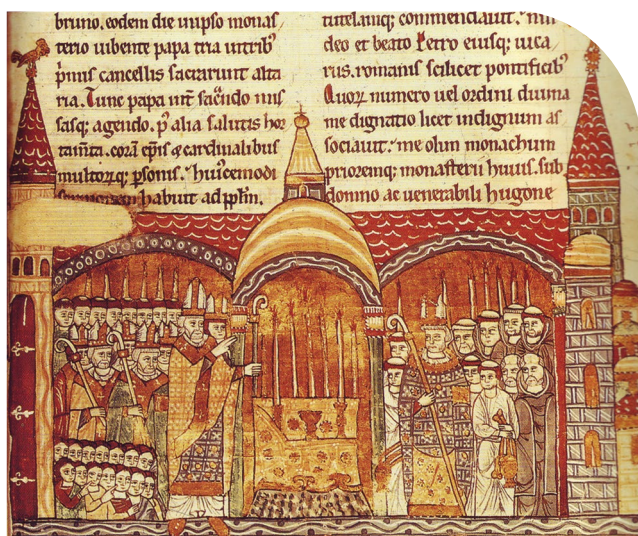 bruno. eodem die in ipso monas-
terio iubente papa tria in tribꝰ
p̄mis cancellis sacrarunt alta
ria. Tunc papa int̄ sac̄ndo mis
sasq; agendo. pꝰ alia salutis hor
corā ep̄is & cardinalibus
multorq; ꝑsonis. huiꝰcemodi
sermonem habuit ad pplm̄.
tutelamq; commendauit.
deo et beato Petro eiusq; uica
riis. romanis scilicet pontificibꝰ
Quoꝝ numero uel ordini diuina
me dignatio licet indignum as
sociauit. me olim monachum
prioremq; monasterii huius. sub
domno ac uenerabili hugone